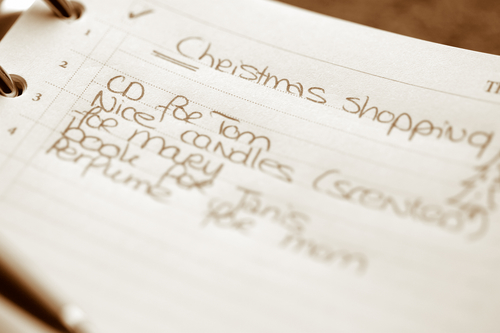 ✓
1 Christmas shopping
Th
2
3 CD for Tom
4 Nice candles (scented)
for mary
Book for Janis
Perfume for mom